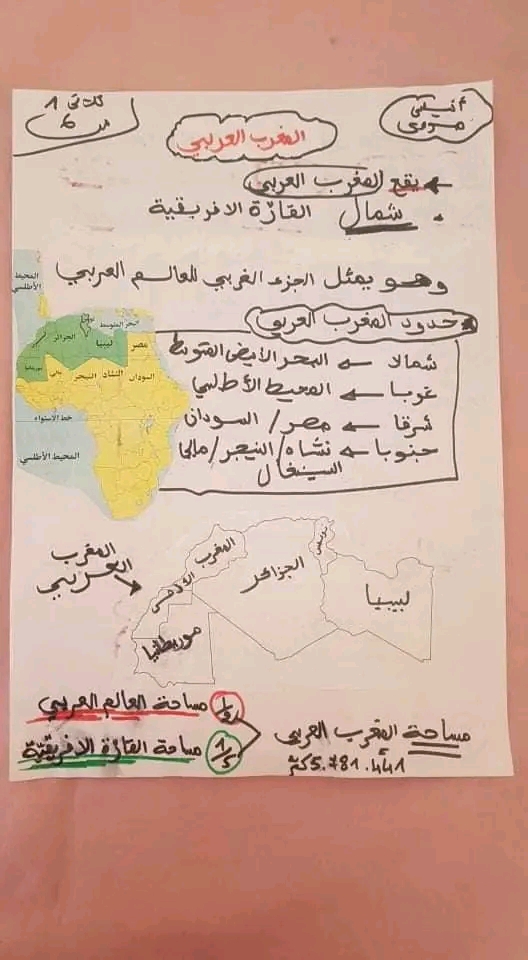 أنيسي
مرموي
ثلاثي 1
س 6
المغرب العربي
يقع المغرب العربي
شمال القارّة الافريقية
وهو يمثل الجزء الغربي للعالم العربي
حدود المغرب العربي
شمالا ← البحر الأبيض المتوسط
غربا ← المحيط الأطلسي
شرقا ← مصر / السودان
جنوبا ← تشاد / النيجر / مالي
السينغال
المحيط
الأطلسي
البحر المتوسط
تونس
الجزائر
ليبيا
مصر
موريتانيا
مالي
النيجر
التشاد
السودان
خط الاستواء
المحيط الأطلسي
المغرب
العربي
المغرب
الجزائر
تونس
ليبيا
موريطانيا
مساحة المغرب العربي
5.781.441 كم²
مساحة العالم العربي
1/5 مساحة القارّة الافريقيّة